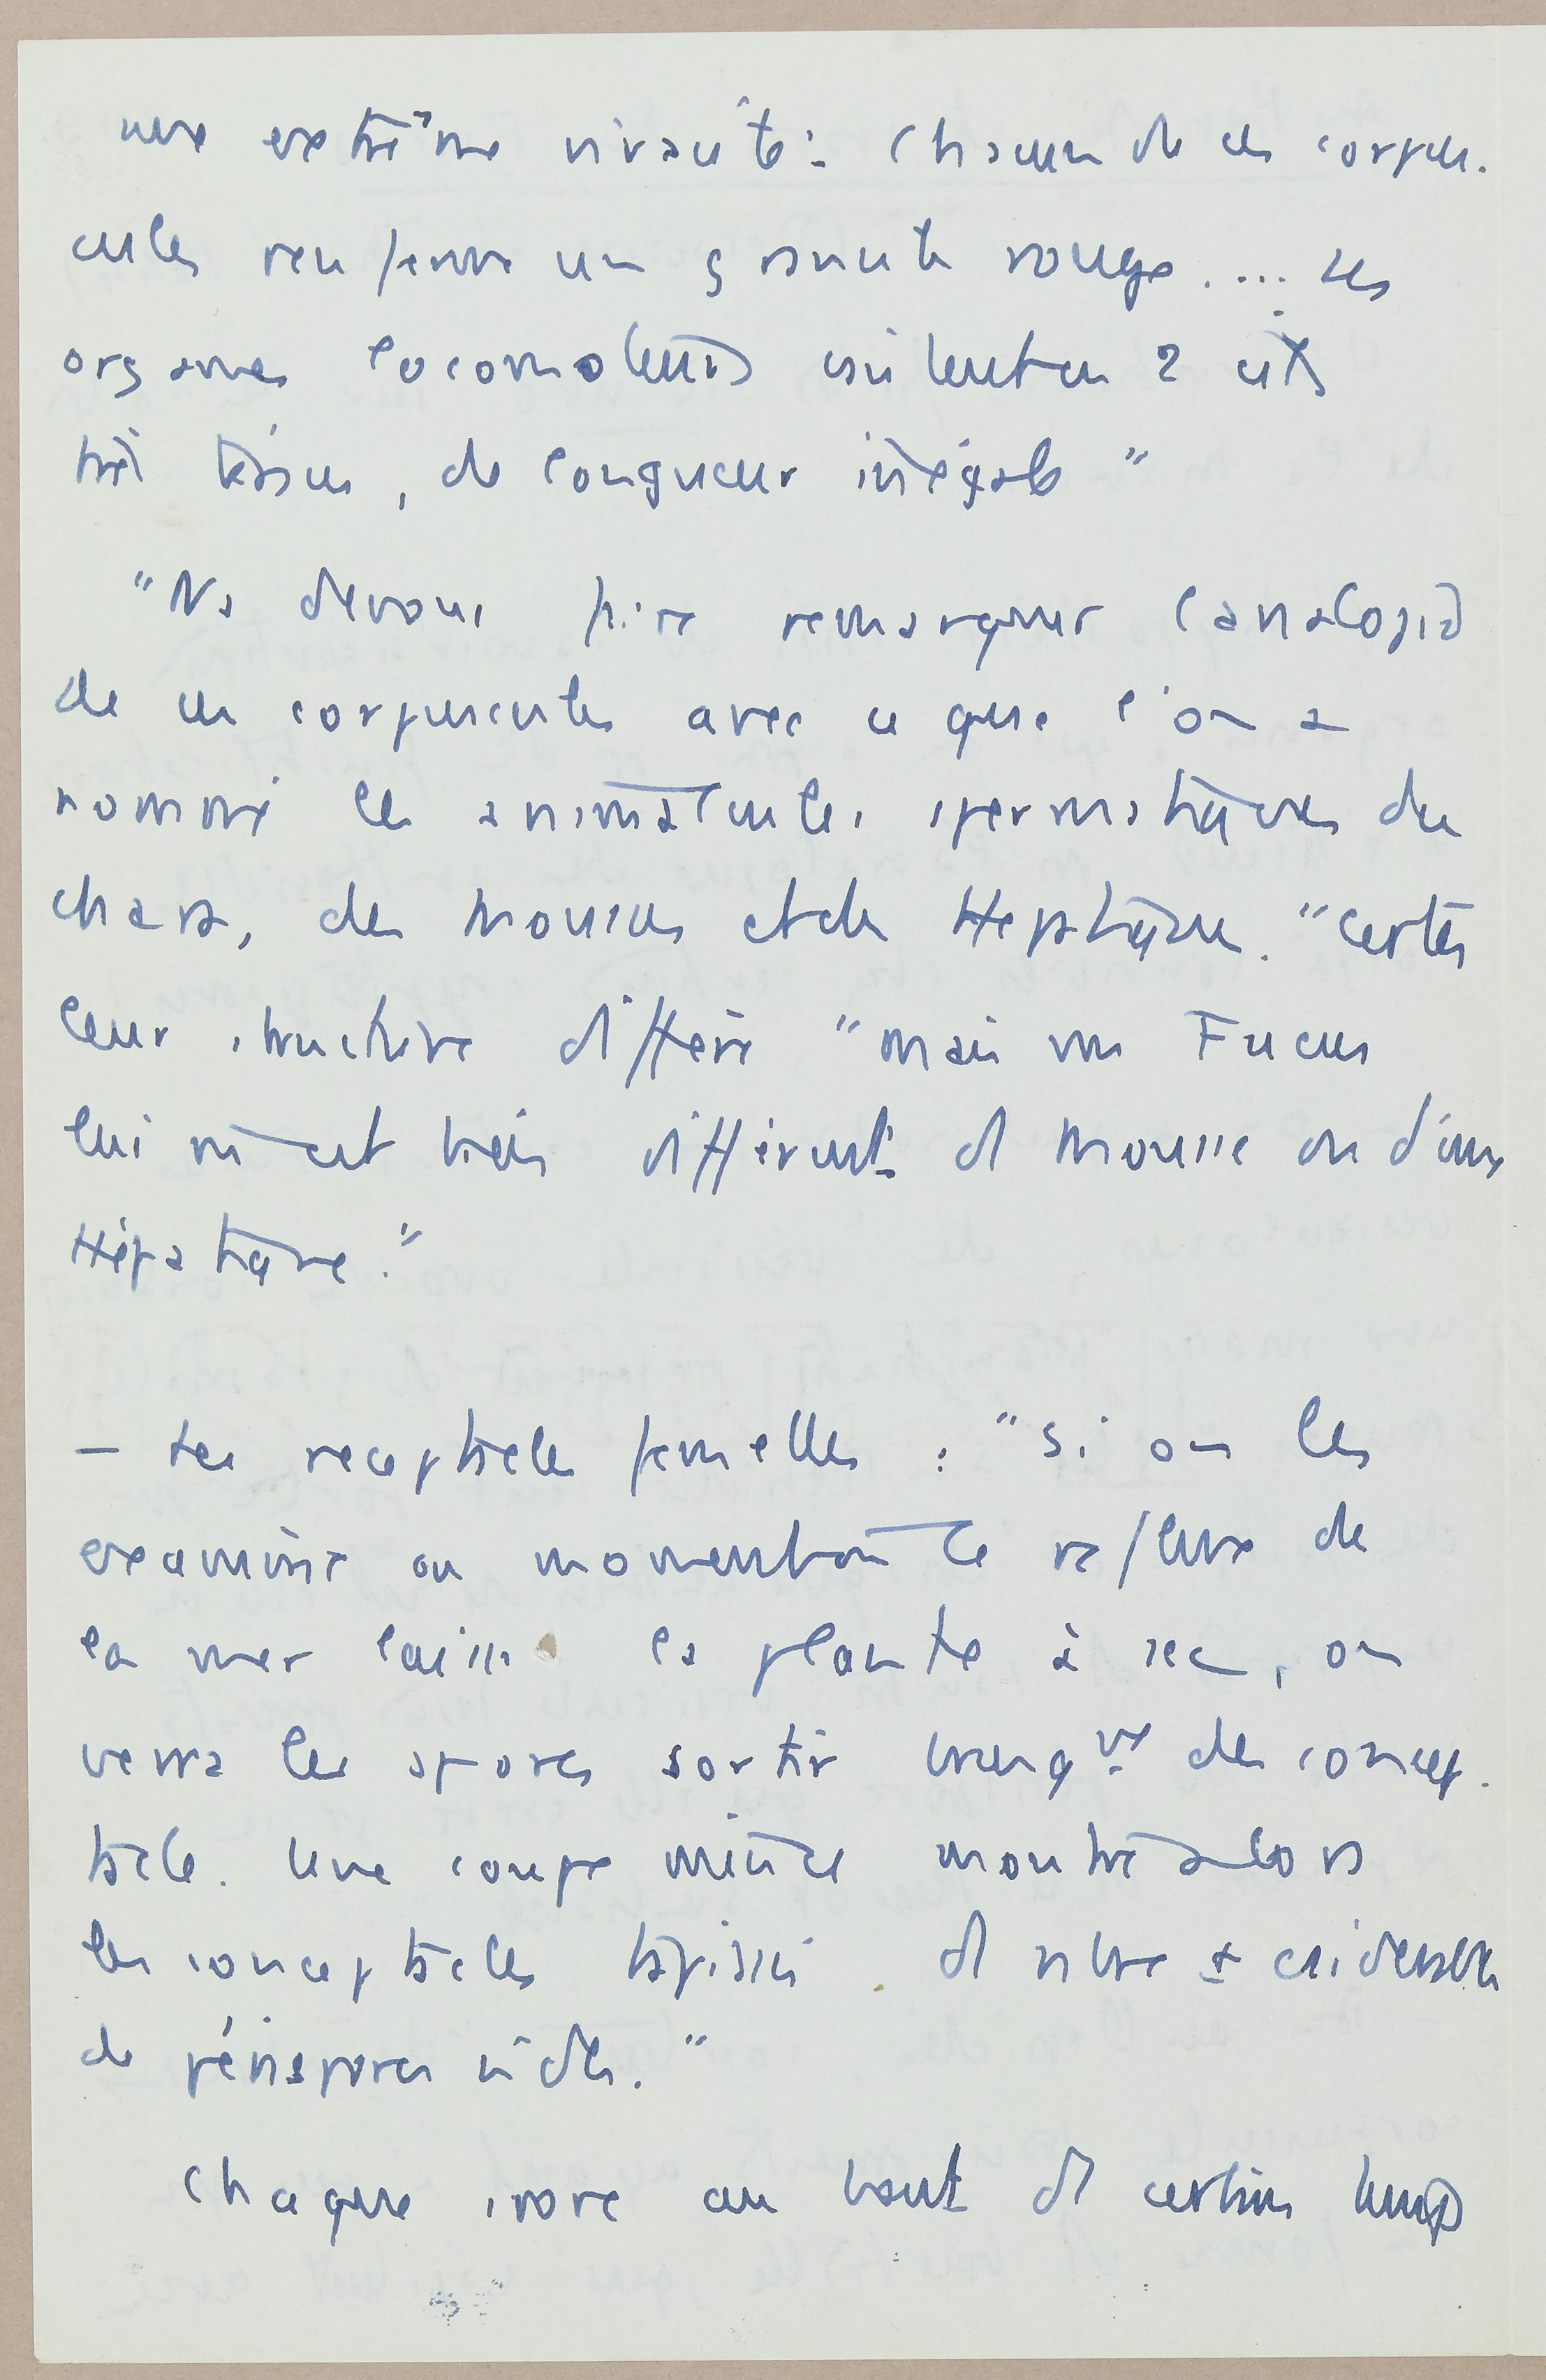 une extrême vivacité : Chacun de ces corpus-
cules renferme un granule rouge .... Les
organes locomoteurs consistent en 2 cils
très ténus, de longueur inégale"
"Ns devons faire remarquer l'analogie
de ces corpuscules avec ce que l'on a
nommé les animalcules spermatiques des
chara, des mousses et des Hépatiques. "Certes
leur structure diffère "mais un Fucus
lui même est très différent d'1 mousse ou d'une
Hépatique."
- Les receptacles femelles : "Si on les
examine au moment où le reflux de
la mer laisse la plante à sec, on
verra les spores sortir des concep-
tacle. Une coupe mince montre alors
les conceptacles tapissés d'1 nbre ±
de périspores vides."
Chaque spore au bout d'1 certain temps